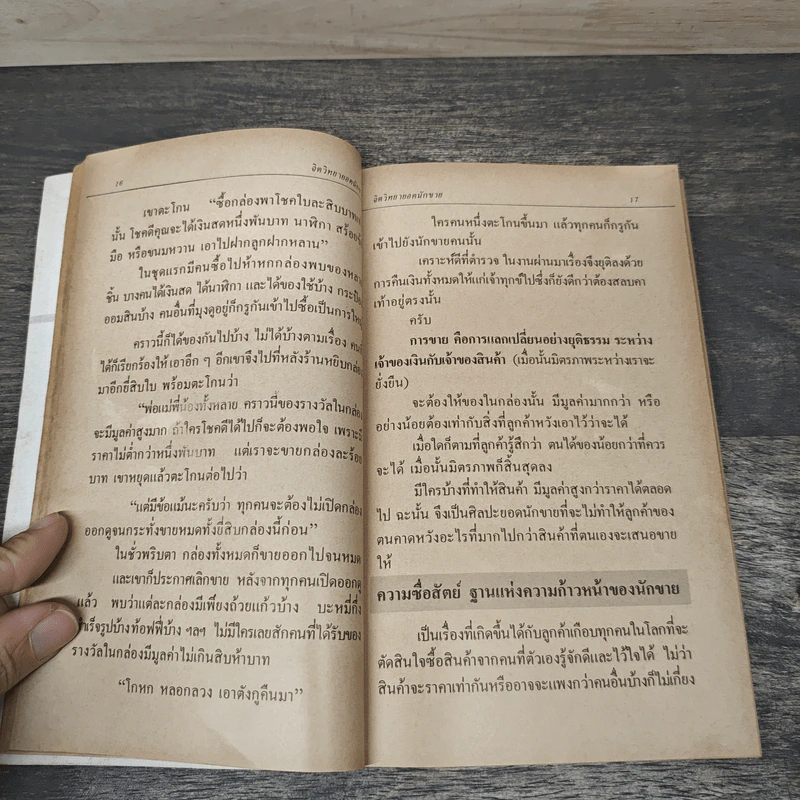 16
จิตวิทยายอดนัก
เขาตะโกน “ซื้อกล่องพาโชคใบละสิบบาท
นั้น โชคดีคุณจะได้เงินสดหนึ่งพันบาท นาฬิกา สร้อย
มือ หรือขนมหวาน เอาไปฝากลูกฝากหลาน”
ในชุดแรกมีคนซื้อไปห้าหกกล่องพบของหลาย
ชิ้น บางคนได้เงินสด ได้นาฬิกา และได้ของใช้บ้าง กระปุก
ออมสินบ้าง คนอื่นที่มุงดูอยู่ก็กรูกันเข้าไปซื้อเป็นการใหญ่
คราวนี้ก็ได้ของกันไปบ้าง ไม่ได้บ้างตามเรื่อง คน
ได้ก็เรียกร้องให้เอาอีก ๆ อีกเขาจึงไปที่หลังร้านหยิบกล่อง
มาอีกยี่สิบใบ พร้อมตะโกนว่า
“พ่อแม่พี่น้องทั้งหลาย คราวนี้ของรางวัลในกล่อง
จะมีมูลค่าสูงมาก ถ้าใครโชคดีได้ไปก็จะต้องพอใจ เพราะมี
ราคาไม่ต่ำกว่าหนึ่งพันบาท แต่เราจะขายกล่องละร้อย
บาท เขาหยุดแล้วตะโกนต่อไปว่า
“แต่มีข้อแม้นะครับว่า ทุกคนจะต้องไม่เปิดกล่อง
ออกดูจนกระทั่งขายหมดทั้งยี่สิบกล่องนี้ก่อน”
ในชั่วพริบตา กล่องทั้งหมดก็ขายออกไปจนหมด
และเขาก็ประกาศเลิกขาย หลังจากทุกคนเปิดออกดู
แล้ว พบว่าแต่ละกล่องมีเพียงถ้วยแก้วบ้าง บะหมี่กึ่ง
สำเร็จรูปบ้างท้อฟฟี่บ้าง ฯลฯ ไม่มีใครเลยสักคนที่ได้รับของ
รางวัลในกล่องมีมูลค่าไม่เกินสิบห้าบาท
“โกหก หลอกลวง เอาตังกูคืนมา”
จิตวิทยายอดนักขาย
17
ใครคนหนึ่งตะโกนขึ้นมา แล้วทุกคนก็กรูกัน
เข้าไปยังนักขายคนนั้น
เคราะห์ดีที่ตำรวจ ในงานผ่านมาเรื่องจึงยุติลงด้วย
การคืนเงินทั้งหมดให้แก่เจ้าทุกข์ไปซึ่งก็ยังดีกว่าต้องสลบคา
เท้าอยู่ตรงนั้น
ครับ
การขาย คือการแลกเปลี่ยนอย่างยุติธรรม ระหว่าง
เจ้าของเงินกับเจ้าของสินค้า (เมื่อนั้นมิตรภาพระหว่างเราจะ
ยั่งยืน)
จะต้องให้ของในกล่องนั้น มีมูลค่ามากกว่า หรือ
อย่างน้อยต้องเท่ากับสิ่งที่ลูกค้าหวังเอาไว้ว่าจะได้
เมื่อใดก็ตามที่ลูกค้ารู้สึกว่า ตนได้ของน้อยกว่าที่ควร
จะได้ เมื่อนั้นมิตรภาพก็สิ้นสุดลง
มีใครบ้างที่ทำให้สินค้า มีมูลค่าสูงกว่าราคาได้ตลอด
ไป ฉะนั้น จึงเป็นศิลปะยอดนักขายที่จะไม่ทำให้ลูกค้าของ
ตนคาดหวังอะไรที่มากไปกว่าสินค้าที่ตนเองจะเสนอขาย
ให้
ความซื่อสัตย์ ฐานแห่งความก้าวหน้าของนักขาย
เป็นเรื่องที่เกิดขึ้นได้กับลูกค้าเกือบทุกคนในโลกที่จะ
ตัดสินใจซื้อสินค้าจากคนที่ตัวเองรู้จักดีและไว้ใจได้ ไม่ว่า
สินค้าจะราคาเท่ากันหรืออาจจะแพงกว่าคนอื่นบ้างก็ไม่เกี่ยง